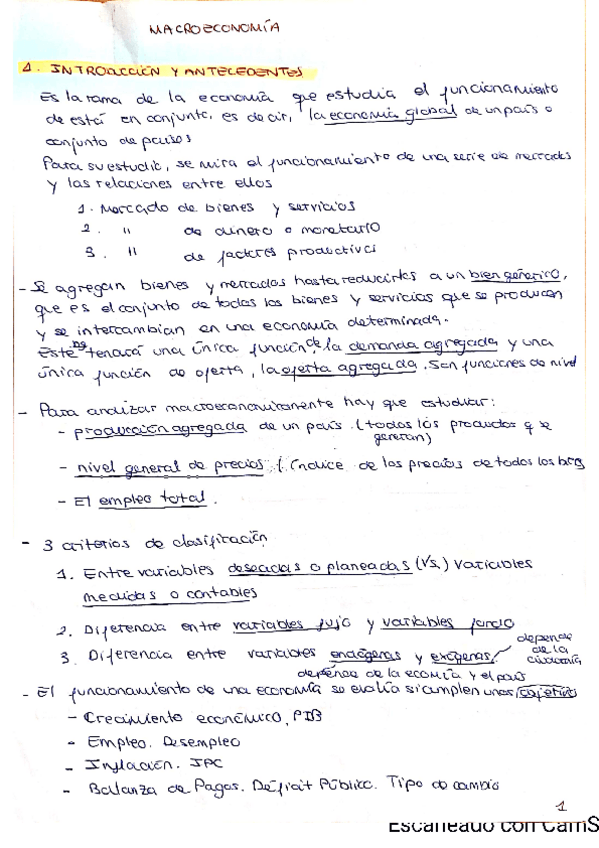 MACROECONOMÍA
1. INTRODUCCIÓN Y ANTECEDENTES
Es la rama de la economía que estudia el funcionamiento
de está en conjunto, es decir, la economía global de un país o
conjunto de países
Para su estudio, se mira el funcionamiento de una serie de mercados
y las relaciones entre ellos
1. Mercado de bienes y servicios
2. " de dinero o monetario
3. " de factores productivos
- Se agregan bienes y mercados hasta reducirlos a un bien genérico,
que es el conjunto de todos los bienes y servicios que se producen
y se intercambian en una economía determinada.
Este bg tendrá una única función de la demanda agregada y una
única función de oferta, la oferta agregada. Son funciones de nivel
- Para analizar macroeconomicamente hay que estudiar:
- producción agregada de un país. (todos los productos q se
generan)
- nivel general de precios (índice de los precios de todos los bs
- El empleo total.
- 3 criterios de clasificación
1. Entre variables deseadas o planeadas (Vs.) variables
medidas o contables
2. Diferencia entre variables flujo y variables fondo
3. Diferencia entre variables endógenas y exógenas
depende
de la
depende de la ecomía y el país
- El funcionamiento de una economía se evalúa si cumplen unos objetivos
- Crecimiento económico, PIB
- Empleo. Desempleo
- Inflación. IPC
- Balanza de Pagos. Déficit Público. Tipo de cambio
1
Escaneado con CamS